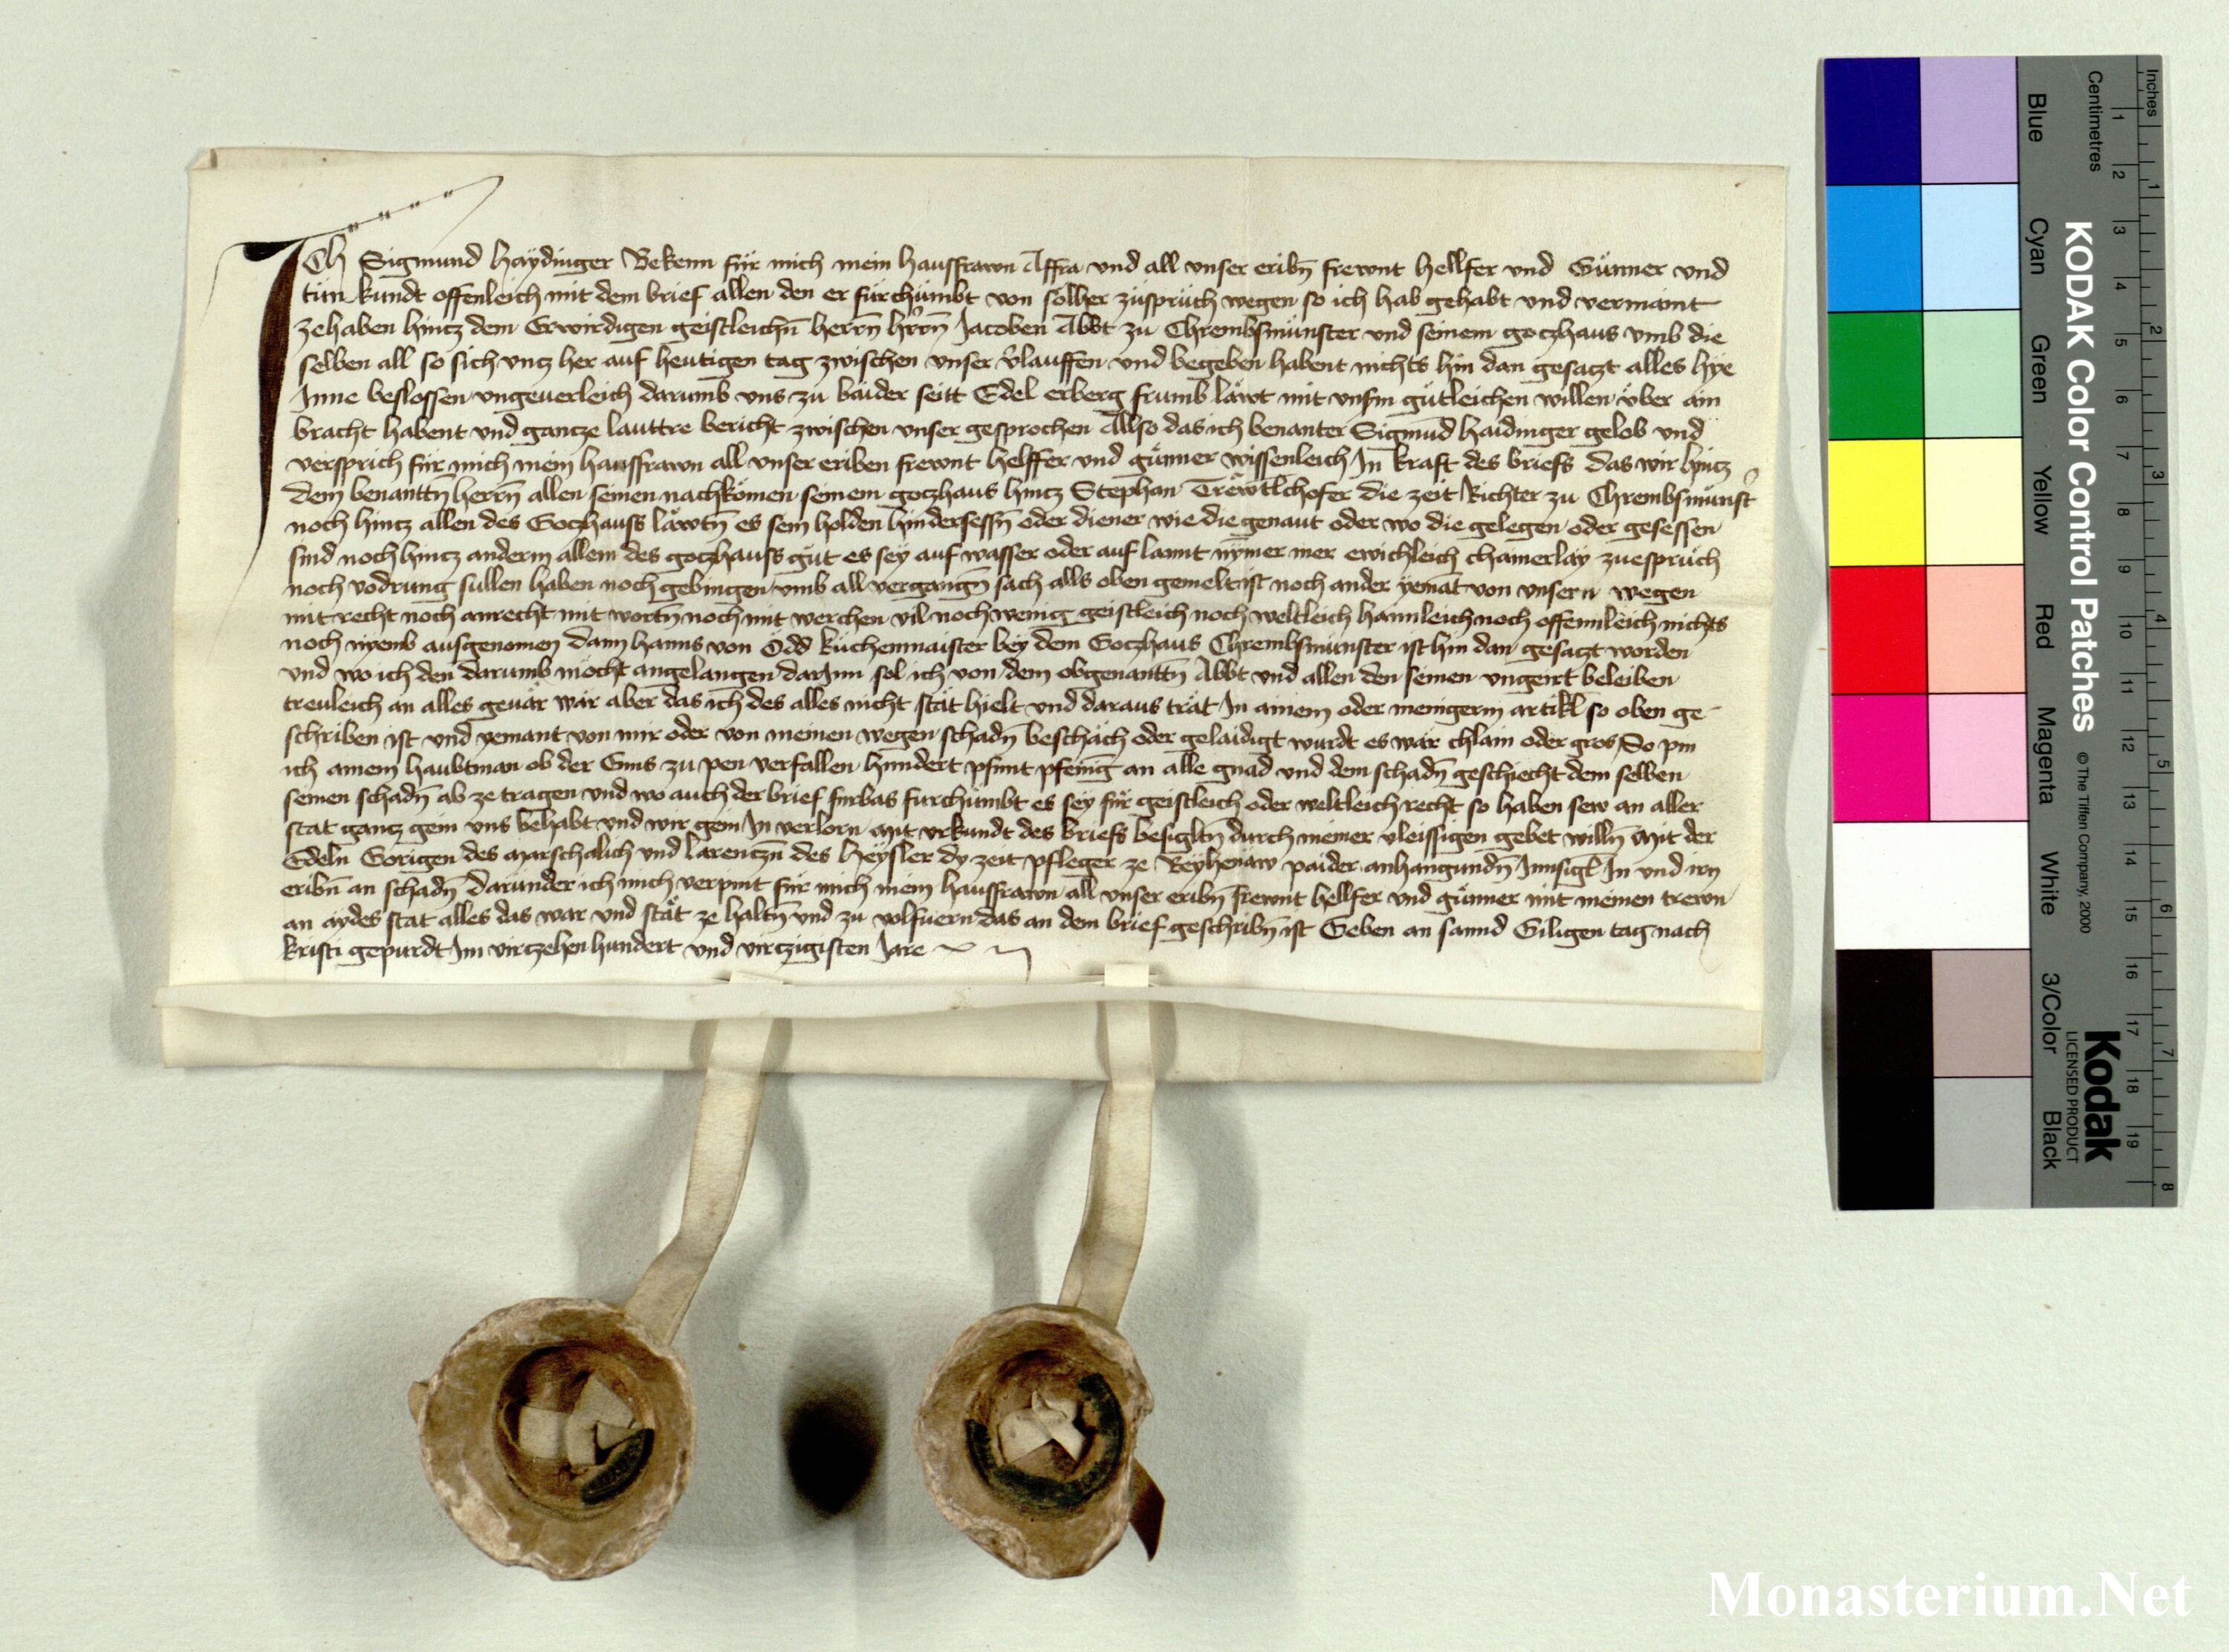 Ich Sigmund Haydinger Bekenn für mich mein hausfrawn Affra und all unser eribn̄ frewnt hellfer und Günner und
tün kundt offenleich mit dem brief allen den er fürchümbt von sölher züsprüch wegen so ich hab gehabt und vermaint
zehaben hintz dem Erwirdigen geistleichn̄ herrn̄ hrn̄ Jacoben Abbt zu Chrembsmünster und seinem goczhaus umb die
selben all so sich untz her auf heutigen tag zwischen unser v̄lauffen und begeben habent nichts hin dan gesaczt alles hye
Inne beslossen ungeuerleich darumb uns zu baider seitt Edel erberg frumb läwt mit unsm̄ gütleichen willen über ain
bracht habent und gancze lauttre bericht zwischen unser gesprochen Allso das ich benanter Sigmūd Haidinger gelob und
versprich für mich mein hausfrawn all unser eriben frewnt helffer und günner wissenleich In kraft des briefs das wir hintz
dem benanttn̄ herrn̄ allen seinen nachkömen seinem goczhaus hincz Stephan Trëwtlchofer die zeit Richter zu Chrembsmünst̄
noch hincz allen des Goczhauss läwtn̄ es sein holden hindersessn̄ oder diener wie die genant oder wo die gelegen oder gesessen
sind noch hincz anderm allem des goczhauss güt es sey auf wasser oder auf lannt nymer mer ewichleich chainerlay zuesprüch
noch vodrung sullen haben noch gebingen umb all vergangn̄ sach alls oben gemelt ist noch ander yemāt von unsern wegen
mit recht noch anrecht mit wortn̄ noch mit werchen vil noch wenig geistleich noch weltleich haimleich noch offennleich nichts
noch nyemb ausgenomen dann hanns von Ödd kuchenmaister bey dem Goczhaus Chrembsmünster ist hin dan gesaczt worden
und wo ich den darumb möcht angelangen darInn sol ich von dem obgenanttn̄ Abbt und allen den seinen ungeirt beleiben
treuleich an alles geuär wär aber das ich des alles nicht stät hielt und daraus trät In ainem oder menigerm artikl so oben ge-
schriben ist und yemant von mir oder von meinen wegen schadn̄ beschäch oder gelaidigt wurdt es wär chlain oder gros So pin
ich ainem haubtman ob der Enns zu pen verfallen hundert pfunt pfenīg an alle gnad und dem schadn̄ geschiecht dem selben
seinen schadn̄ ab ze tragen und wo auch der brief furbas furchümbt es sey für geistleich oder weltleich recht so haben sew an aller
stat gancz gein uns behabt und wir gein In verlorn Mit urkundt des briefs besigltn̄ durch meiner vleissigen gebet willn̄ Mit der
Edeln Gorigen des Marschalich und Larenczn̄ des Heysler dy zeit pfleger ze paider anhangundn̄ Innsigl In und irn
eribn̄ an schadn̄ darunder ich mich verpint für mich mein hausfrawn all unser eribn̄ frewnt hellfer und günner mit meinen trewn
an aydes stat alles das war und stät ze haltn̄ und zu volfuern das an dem brief geschribn̄ ist Geben an sannd Giligen tag nach
kristi gepurdt Im virczehenhundert und virczigisten Jare
KODAK Color Control Patches
© The Tiffen Company, 2000
Kodak
LICENSED PRODUCT
Inches
Centimetres
Blue Cyan Green Yellow Red Magenta White 3/Color Black
1 2 3 4 5 6 7 8 9 10 11 12 13 14 15 16 17 18 19
1 2 3 4 5 6 7 8
Monasterium.Net